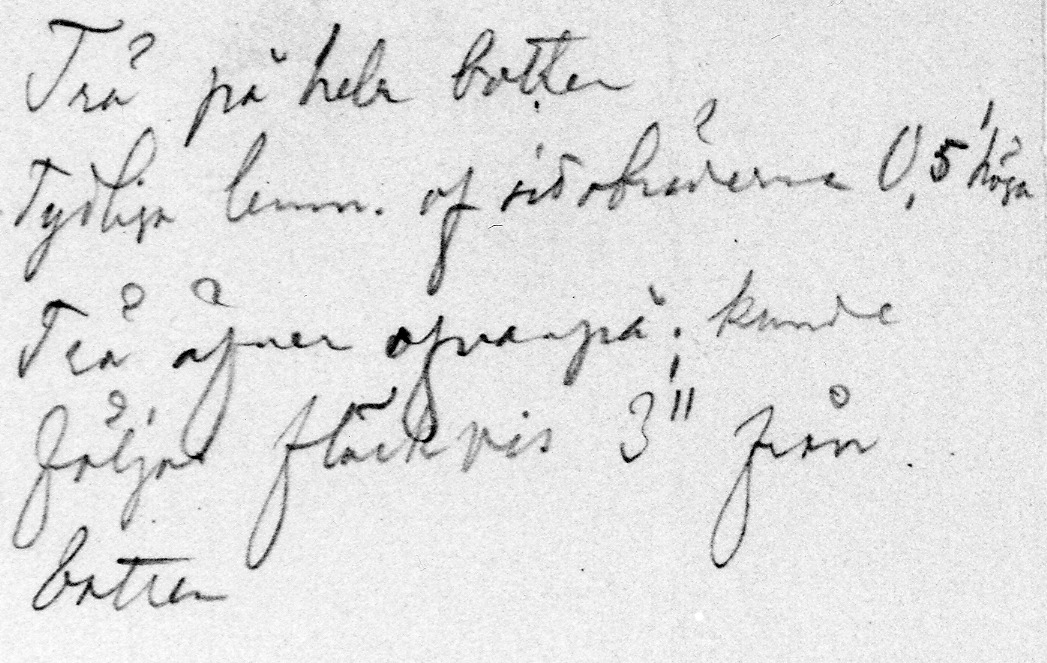 Trä på hela botten
Tydliga lemn. af sidobräderna 0,5' höga
Trä äfven ofvanpå; kunde
följas fläckvis 3" från
botten